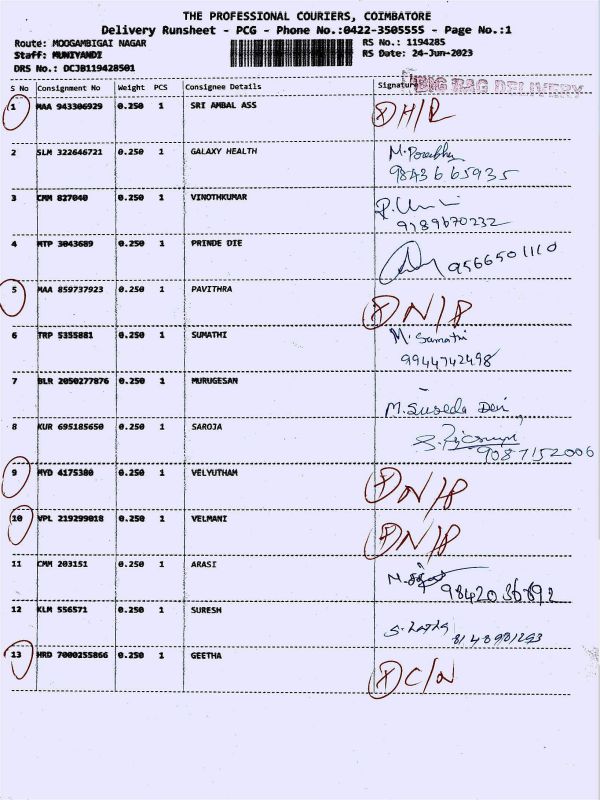 THE PROFESSIONAL COURIERS, COIMBATORE
Delivery Runsheet - PCG - Phone No.:0422-3505555 - Page No.:1
Route: MOOGAMBIGAI NAGAR RS No.: 1194285
Staff: MUNIYANDI RS Date: 24-Jun-2023
DRS No.: DCJB119428501
BIG BAG DELIVERY
S No Consignment No Weight PCS Consignee Details Signature
1 MAA 943306929 0.250 1 SRI AMBAL ASS (X) H/R
2 SLM 322646721 0.250 1 GALAXY HEALTH M. Prabhu
9843665935
3 CMM 827040 0.250 1 VINOTHKUMAR
9789670232
4 MTP 3043689 0.250 1 PRINDE DIE 9566501110
5 MAA 859737923 0.250 1 PAVITHRA (X) N/A
6 TRP 5355881 0.250 1 SUMATHI M. Sumathi
9944742498
7 BLR 2050277876 0.250 1 MURUGESAN
M. Suseela Devi
8 KUR 695185650 0.250 1 SAROJA
9087152006
9 MYD 4175380 0.250 1 VELYUTHAM (X) N/A
10 VPL 219299018 0.250 1 VELMANI (X) N/A
11 CMM 203151 0.250 1 ARASI
9842036892
12 KLM 556571 0.250 1 SURESH S. Latha
8148981293
13 HRD 7000255866 0.250 1 GEETHA (X) C/N